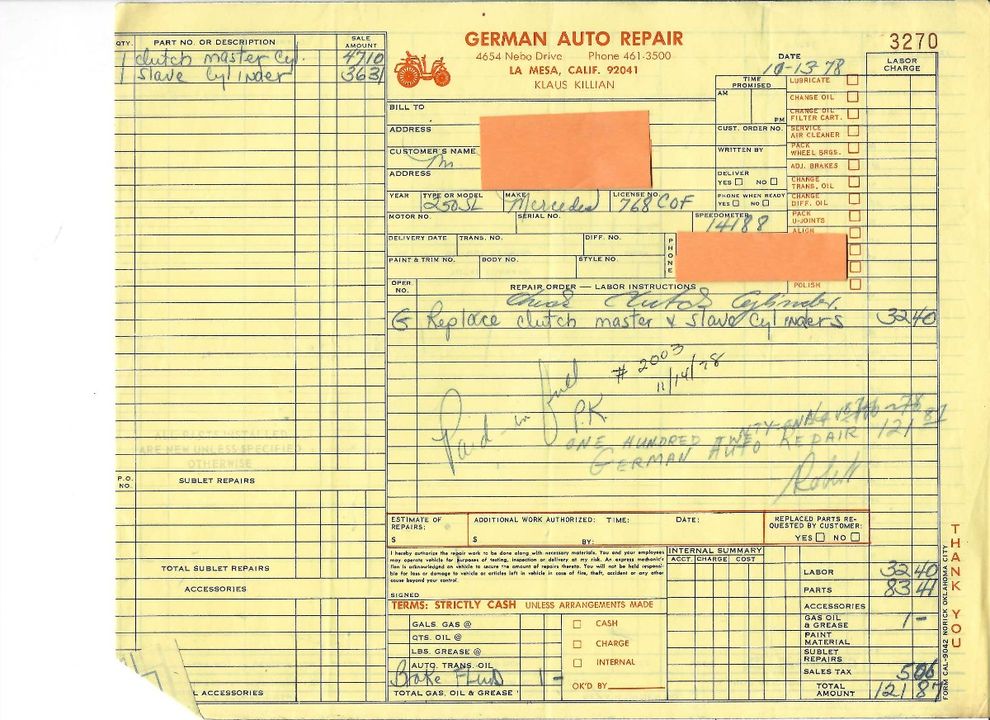 QTY. PART NO. OR DESCRIPTION SALE AMOUNT
1 clutch master Cyl. 4710
1 slave Cylinder 3631
ALL PARTS INSTALLED
ARE NEW UNLESS SPECIFIED
OTHERWISE
P.O. NO. SUBLET REPAIRS
TOTAL SUBLET REPAIRS
ACCESSORIES
L ACCESSORIES
GERMAN AUTO REPAIR
4654 Nebo Drive Phone 461-3500
LA MESA, CALIF. 92041
KLAUS KILLIAN
3270
DATE
10-13-78
LABOR CHARGE
BILL TO
ADDRESS
CUSTOMER'S NAME
ADDRESS
TIME PROMISED
AM
PM
CUST. ORDER NO.
WRITTEN BY
DELIVER
YES NO
PHONE WHEN READY
YES NO
LUBRICATE
CHANGE OIL
CHANGE OIL FILTER CART.
SERVICE AIR CLEANER
PACK WHEEL BRGS.
ADJ. BRAKES
CHANGE TRANS. OIL
CHANGE DIFF. OIL
PACK U-JOINTS
ALIGN
POLISH
YEAR TYPE OR MODEL MAKE LICENSE NO.
250SL Mercedes 768 COF
MOTOR NO. SERIAL NO. SPEEDOMETER
14188
DELIVERY DATE TRANS. NO. DIFF. NO. PHONE
PAINT & TRIM NO. BODY NO. STYLE NO.
OPER. NO. REPAIR ORDER — LABOR INSTRUCTIONS
Clutch Cylinder
G Replace clutch master & slave Cylinders 3240
# 2003
11/14/78
Paid - in full
P.K.
ONE HUNDRED TWENTY-ONE 121 87
GERMAN AUTO REPAIR
Robert
ESTIMATE OF REPAIRS: ADDITIONAL WORK AUTHORIZED: TIME: DATE: REPLACED PARTS REQUESTED BY CUSTOMER:
$ $ BY: YES NO
I hereby authorize the repair work to be done along with necessary materials. You and your employees
may operate vehicle for purposes of testing, inspection or delivery at my risk. An express mechanic's
lien is acknowledged on vehicle to secure the amount of repairs thereto. You will not be held responsi-
ble for loss or damage to vehicle or articles left in vehicle in case of fire, theft, accident or any other
cause beyond your control.
SIGNED
INTERNAL SUMMARY
ACCT. CHARGE COST
TERMS: STRICTLY CASH UNLESS ARRANGEMENTS MADE
GALS. GAS @
QTS. OIL @
LBS. GREASE @
AUTO. TRANS. OIL
Brake Fluid 1-
TOTAL GAS, OIL & GREASE
CASH
CHARGE
INTERNAL
OK'D BY
LABOR 3240
PARTS 8341
ACCESSORIES
GAS OIL & GREASE 1-
PAINT MATERIAL
SUBLET REPAIRS
SALES TAX 506
TOTAL AMOUNT 121 87
THANK YOU
FORM CAL-9042 NORICK OKLAHOMA CITY